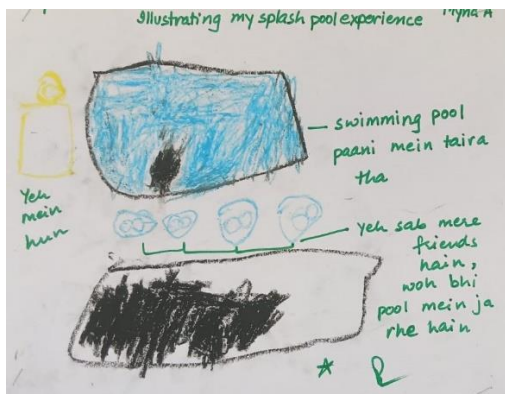 Illustrating my splash pool experience
Myna A
swimming pool
paani mein taira
tha
Yeh
mein
hun
Yeh sab mere
friends
hain,
woh bhi
pool mein ja
rhe hain